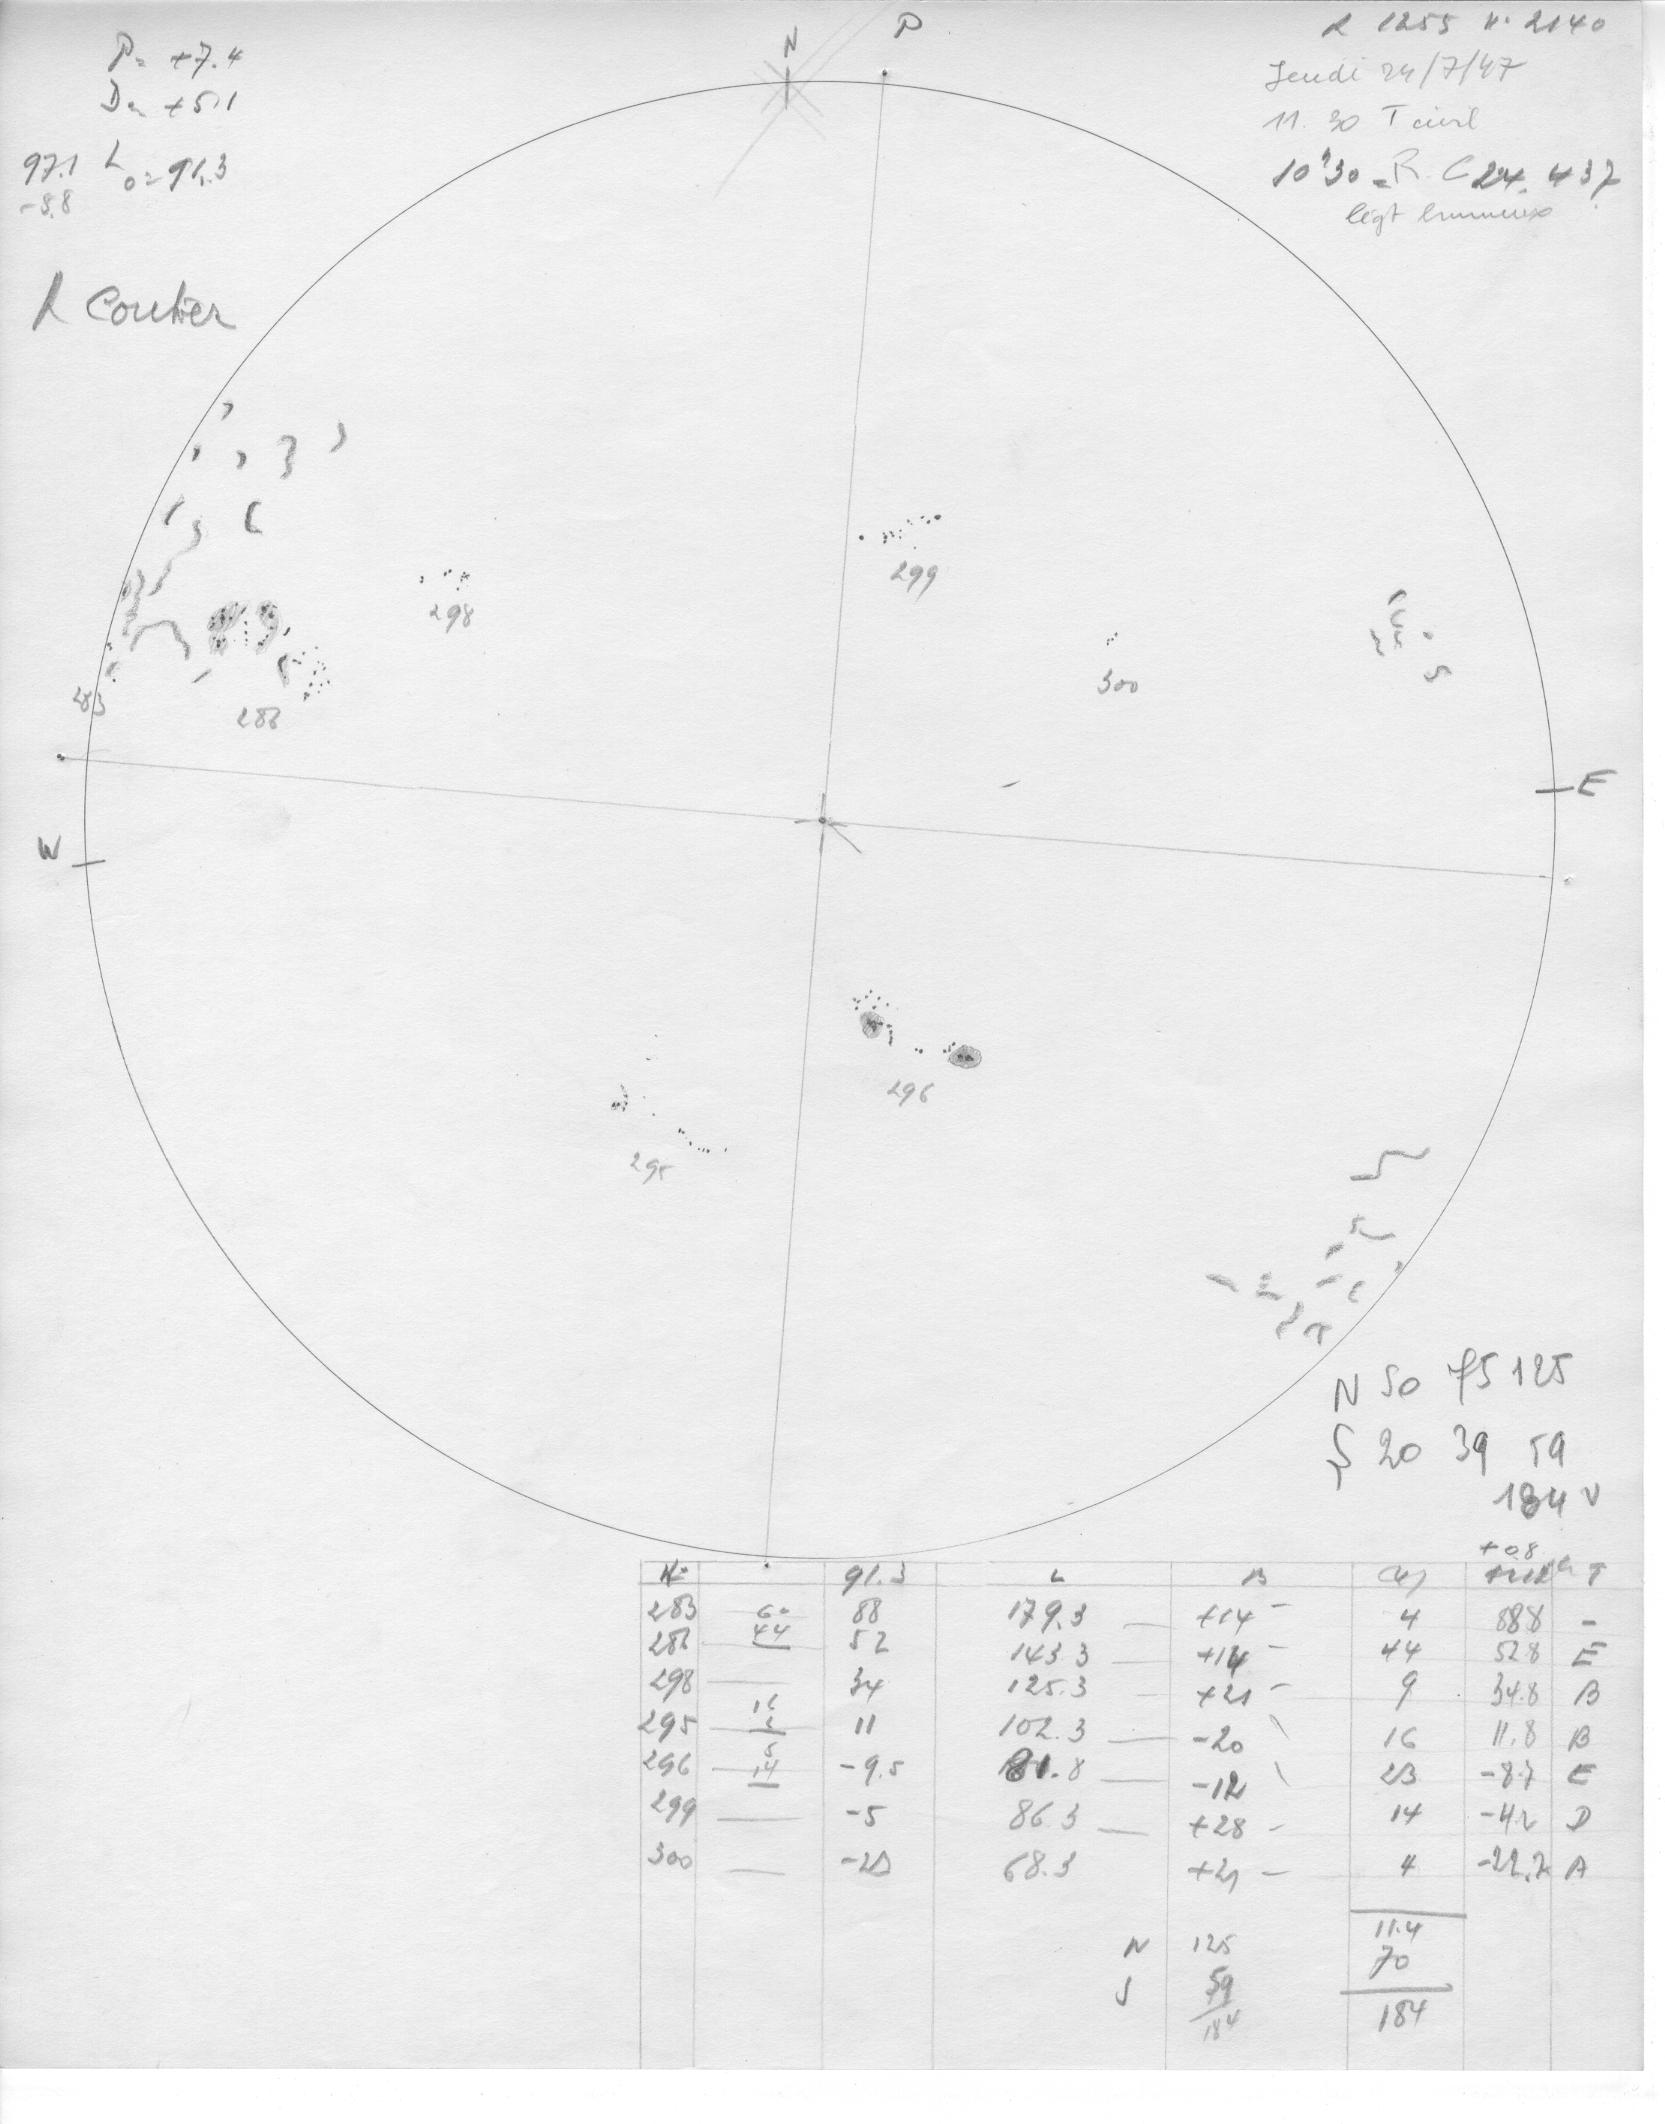 N P
P = +7.4
D = +5.1
97.1 L0 = 91.3
-5.8
R 1255 n° 2140
Jeudi 24/7/47
11.30 T civil
10h30 = R. C 24.437
légt brumeux
R Coutier
299
298
300
283
286
E
W
296
295
N 50 75 125
S 20 39 59
184
+0.8
N° 91.3 L B T
283 60 88 179.3 — +14 - 4 88.8 -
286 44 52 143.3 — +14 - 44 52.8 E
298 — 34 125.3 — +21 - 9 34.8 B
295 16 11 102.3 — -20 16 11.8 B
296 14 -9.5 81.8 — -12 23 -8.7 E
299 — -5 86.3 — +28 - 14 -4.2 D
300 — -23 68.3 +21 — 4 -22.2 A
N 125 114
S 59 70
184 184